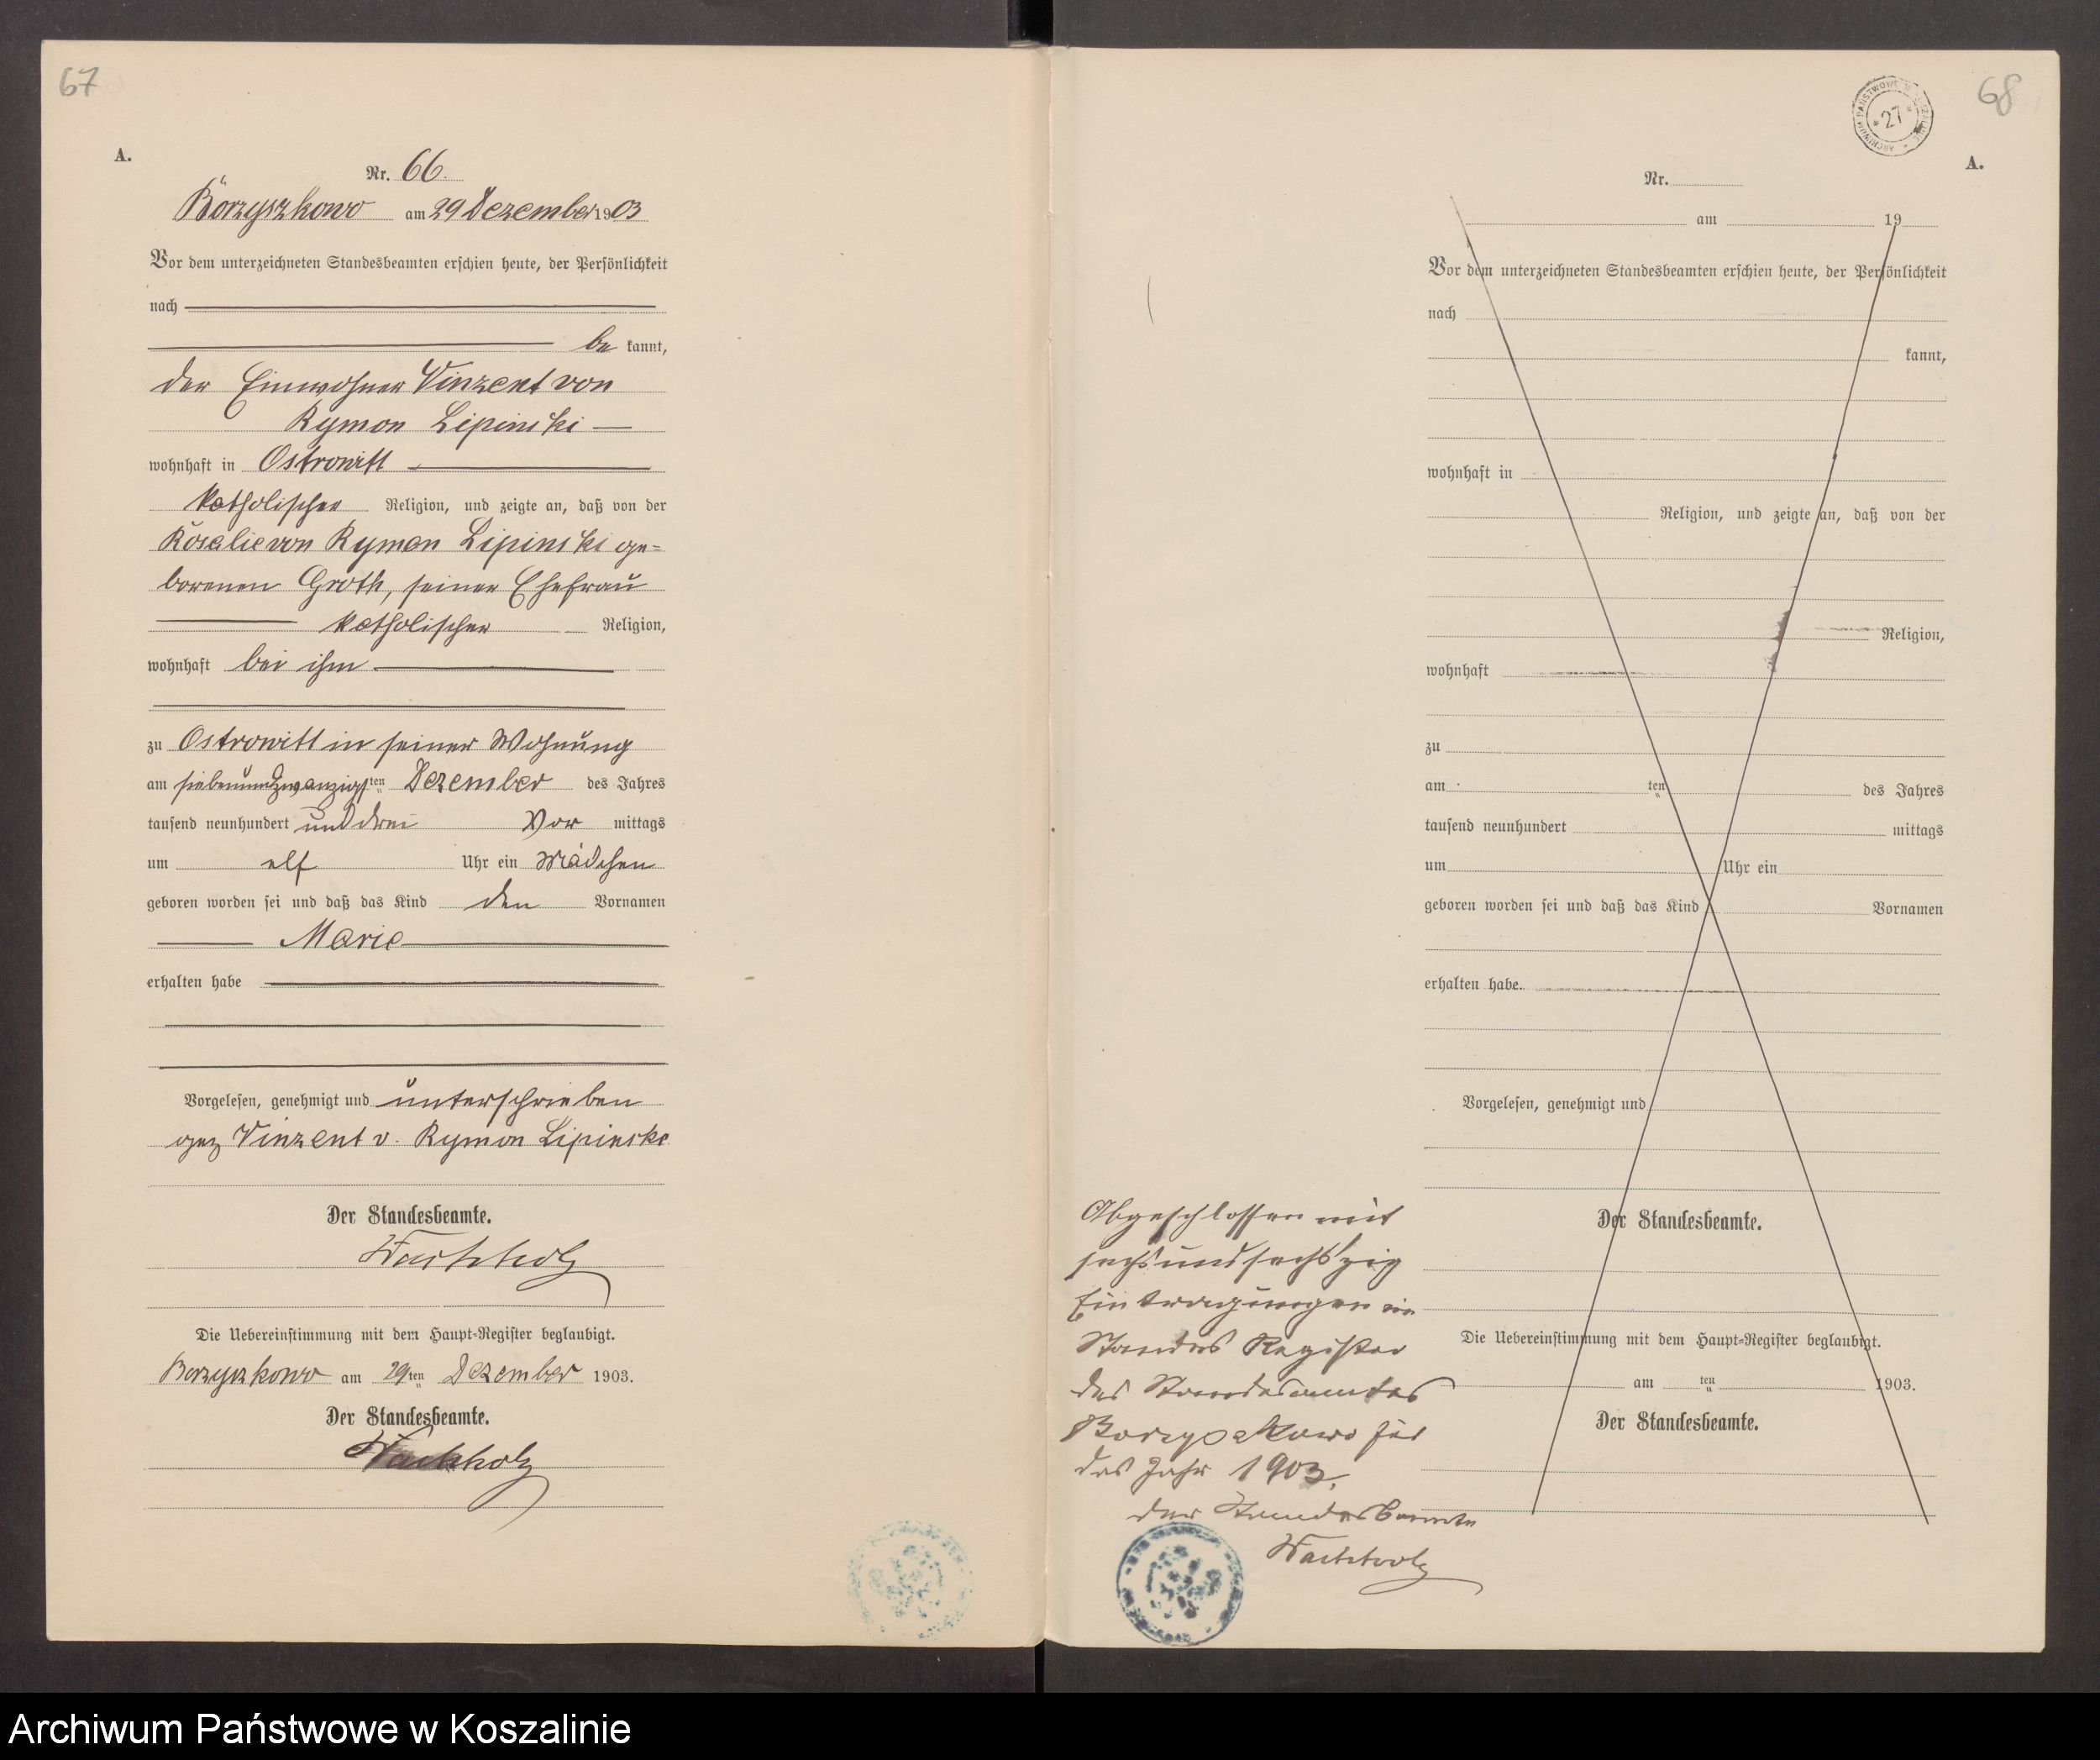 67
A.
Nr. 66.
Borzyszkowo am 29 Dezember 1903
Vor dem unterzeichneten Standesbeamten erschien heute, der Persönlichkeit
nach
be kannt,
der Einwohner Vinzent von
Rymon Lipinski
wohnhaft in Ostrowitt
katholischer Religion, und zeigte an, daß von der
Rosalie von Rymon Lipinski ge=
borenen Groth, seiner Ehefrau
katholischer Religion,
wohnhaft bei ihm
zu Ostrowitt in seiner Wohnung
am siebenundzwanzigsten Dezember des Jahres
tausend neunhundert und drei Vor mittags
um elf Uhr ein Mädchen
geboren worden sei und daß das Kind den Vornamen
Marie
erhalten habe
Vorgelesen, genehmigt und unterschrieben
gez Vinzent v. Rymon Lipinski
Der Standesbeamte.
Wachholz
Die Uebereinstimmung mit dem Haupt-Register beglaubigt.
Borzyszkowo am 29ten Dezember 1903.
Der Standesbeamte.
Wachholz
68
ARCHIWUM PAŃSTWOWE W KOSZALINIE
* 27 *
A.
Nr.
am 19
Vor dem unterzeichneten Standesbeamten erschien heute, der Persönlichkeit
nach
kannt,
wohnhaft in
Religion, und zeigte an, daß von der
Religion,
wohnhaft
zu
am ten des Jahres
tausend neunhundert mittags
um Uhr ein
geboren worden sei und daß das Kind Vornamen
erhalten habe.
Vorgelesen, genehmigt und
Der Standesbeamte.
Die Uebereinstimmung mit dem Haupt-Register beglaubigt.
am ten 1903.
Der Standesbeamte.
Abgeschlossen mit
sechsundsechszig
Eintragungen im
Standes Register
des Standesamtes
Borzyszkowo für
das Jahr 1903.
der Standesbeamte
Wachholz
Archiwum Państwowe w Koszalinie